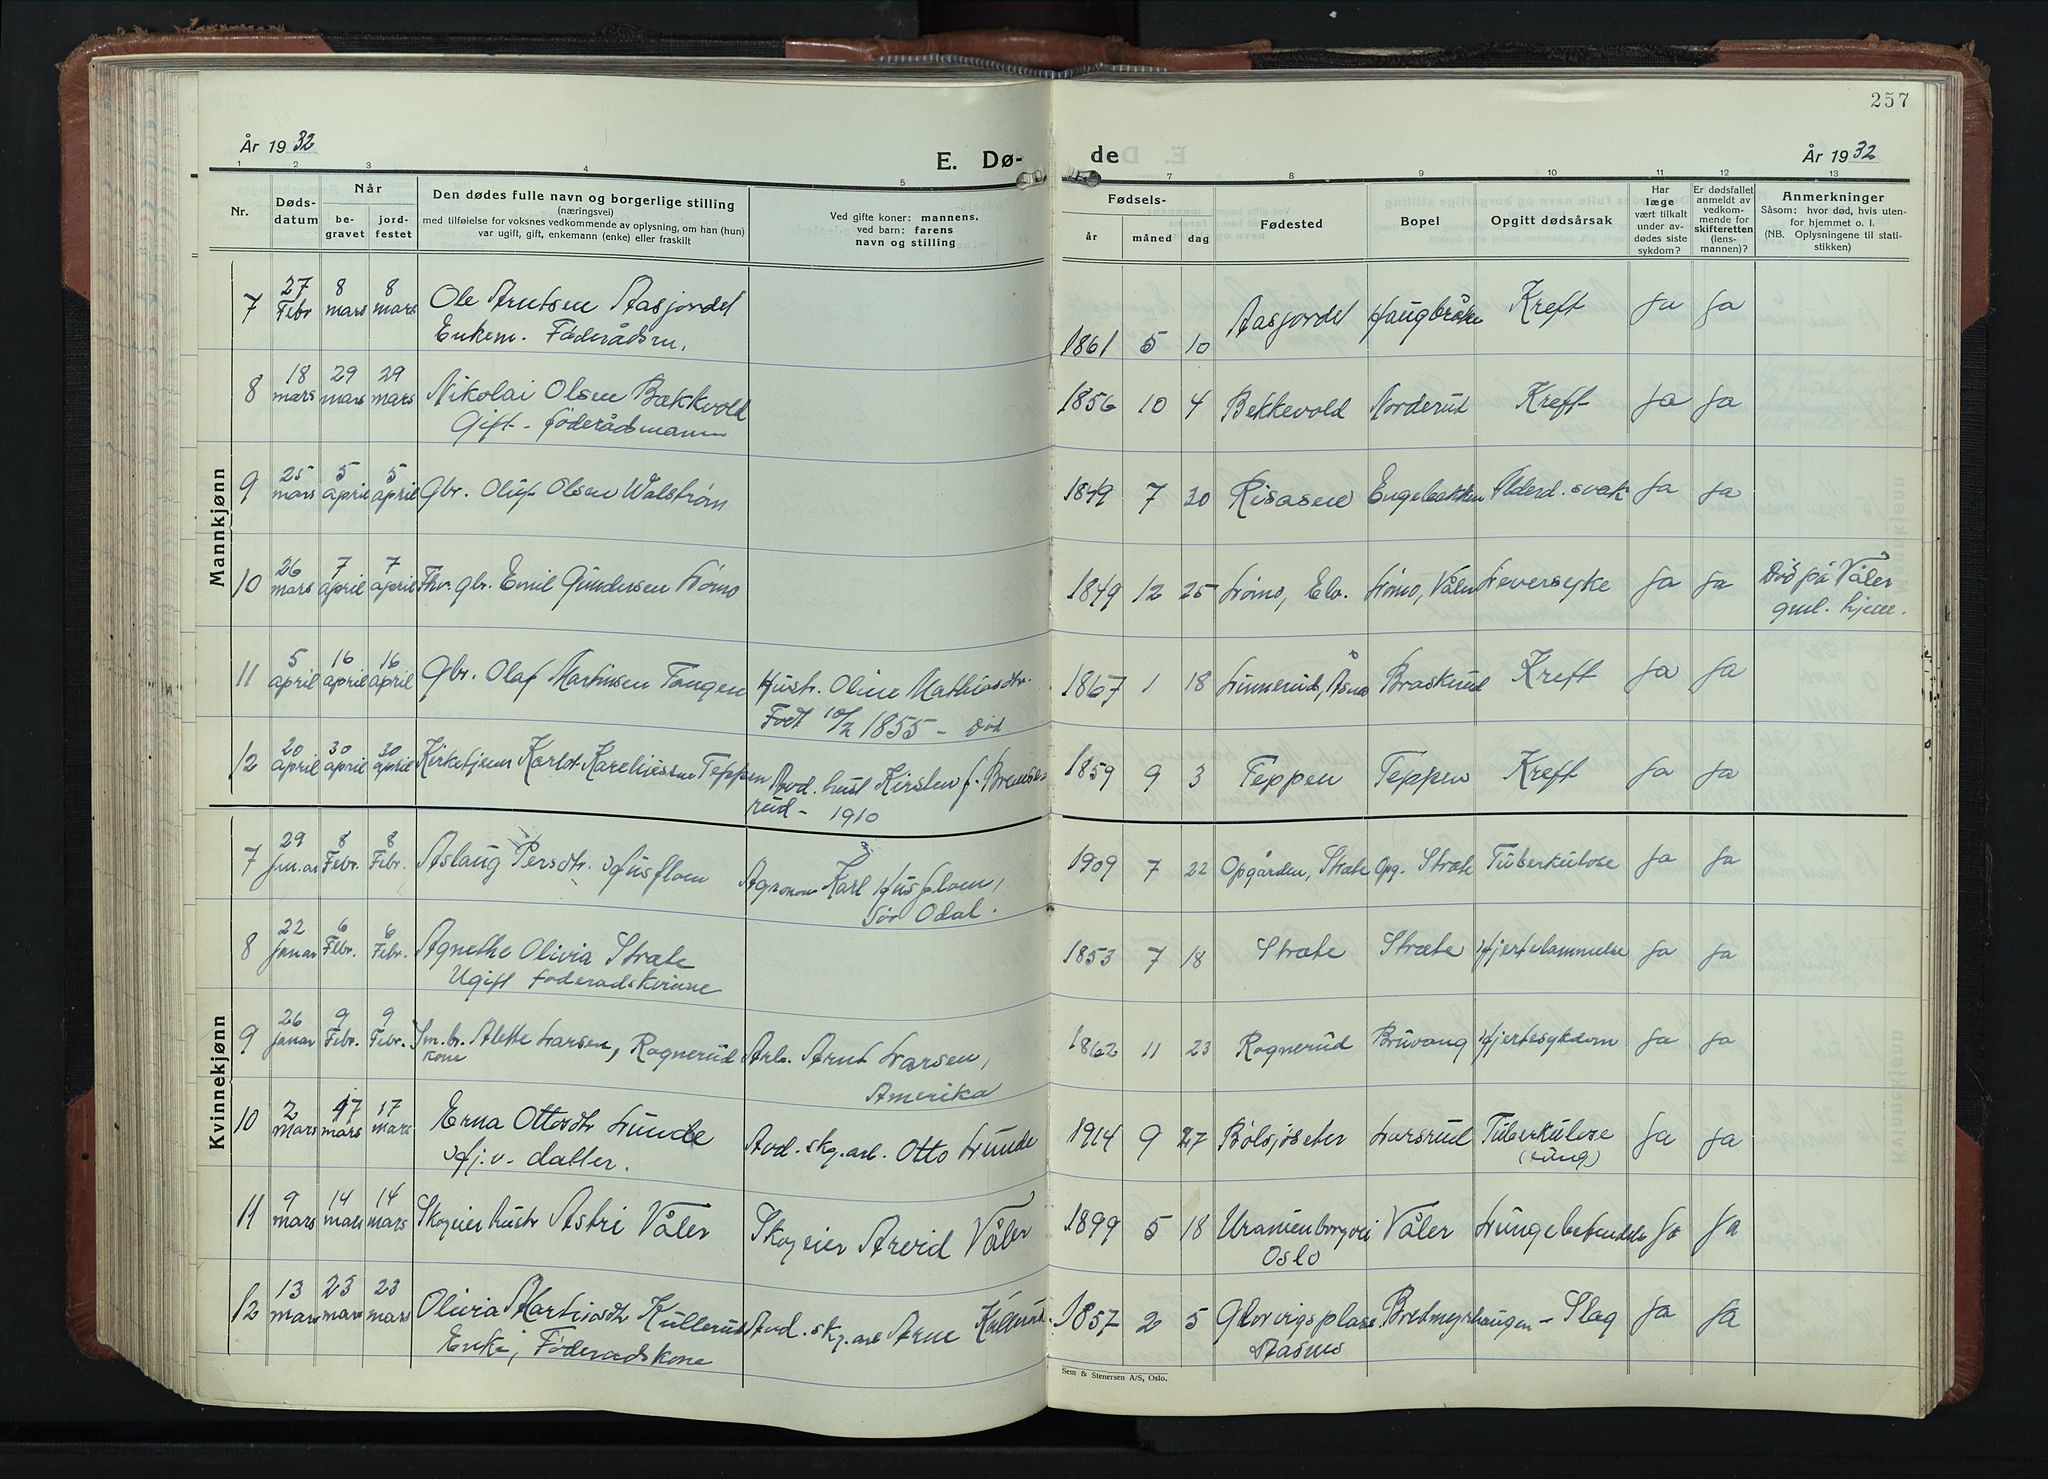 257
År 1932
E. Dø-
de
År 1932
1 2 3 4 5 7 8 9 10 11 12 13
Nr.
Døds-
datum
Når
be-
gravet
jord-
festet
Den dødes fulle navn og borgerlige stilling
(næringsvei)
med tilføielse for voksnes vedkommende av oplysning, om han (hun)
var ugift, gift, enkemann (enke) eller fraskilt
Ved gifte koner: mannens,
ved barn: farens
navn og stilling
Fødsels-
år
måned
dag
Fødested
Bopel
Opgitt dødsårsak
Har
læge
vært tilkalt
under av-
dødes siste
sykdom?
Er dødsfallet
anmeldt av
vedkom-
mende for
skifteretten
(lens-
mannen)?
Anmerkninger
Såsom: hvor død, hvis uten-
for hjemmet o. l.
(NB. Oplysningene til stati-
stikken)
Mannkjønn
7 27 Febr 8 mars 8 mars Ole Arntsen Aasjordet 1861 5 10 Aasjordet Haugbråten Kreft Ja Ja
Enkem. Føderådsm.
8 18 mars 29 mars 29 mars Nikolai Olsen Bækkvold 1856 10 4 Bekkevold Norderud Kreft Ja Ja
Gift - føderådsmann
9 25 mars 5 april 5 april Gbr. Oluf Olsen Walstrøm 1849 7 30 Risasen Engebakken Alderd. svak Ja Ja
10 26 mars 7 april 7 april Fhv. gbr. Emil Gundersen Lømo 1849 12 25 Lømo, Elv. Lømo, Våler Leversyke Ja Ja Død på Våler
gml. hjem.
11 5 april 16 april 16 april Gbr. Olaf Martinsen Tangen Hustr. Oline Mathiasdtr. 1867 1 18 Linnerud, Åsnes Braskerud Kreft Ja Ja
Født 10/2 1855 - Død
12 20 april 30 april 30 april Kirketjener Karl Teppen Avd. hust Kirsten f. 1859 9 3 Teppen Teppen Kreft Ja Ja
rud - 1910
Kvinnekjønn
7 29 Januar 8 Febr. 8 Febr. Aslaug Persdtr. Husfloen Agronom Karl Husfloen, 1909 7 22 Opgården, Stræte Opg. Stræte Tuberkulose Ja Ja
Sør Odal.
8 22 Januar 6 Febr. 6 Febr. Agnethe Olivia Stræte 1853 7 18 Stræte Stræte Hjertelammelse Ja Ja
Ugift føderadskvinne
9 26 Januar 9 Febr. 9 Febr. Sm.br. kone Alette Larsen, Rognerud Arb. Arnt Larsen, 1862 11 23 Rognerud Bruvang Hjertesykdom Ja Ja
Amerika
10 2 Mars 17 mars 17 mars Erna Ottosdtr Lunde Avd. skg.arb. Otto Lunde 1914 9 27 Bølsjøseter Larsrud Tuberkulose Ja Ja
Hj.v. datter. (lung)
11 9 mars 14 mars 14 mars Skogeier hustr Astri Våler Skogeier Arvid Våler 1899 5 18 Uranienborgvei Våler Lungebetendelse Ja Ja
Oslo
12 13 mars 23 mars 23 mars Olivia Martinsdtr Kullerud Avd. skg.arb Arne Kullerud. 1857 2 5 Glorvigsplase Bredmyrhaugen Slag Ja Ja
Enke, Føderadskone Aasnes
Sem & Stenersen A/S, Oslo.